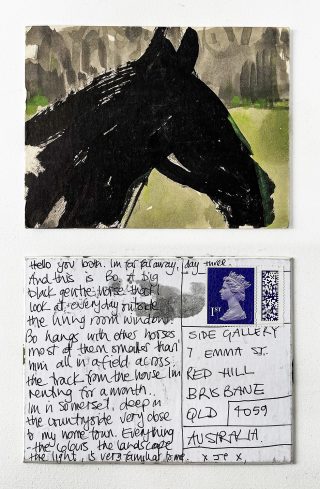 Hello you both. Im far far away, day three.
And this is Bo. A big
black gentle horse that I
look at every day outside of
the living room window.
Bo hangs with other horses
most of them smaller than
him all in a field across
the track from the house Im
renting for a month.
Im in somerset, deep in
the countryside very close
to my home town. Everything
- the colours the landscape
the light, is very familiar to me.
x Jo x
1ST
SIDE GALLERY
7 EMMA ST.
RED HILL
BRISBANE
QLD 4059
AUSTRALIA.